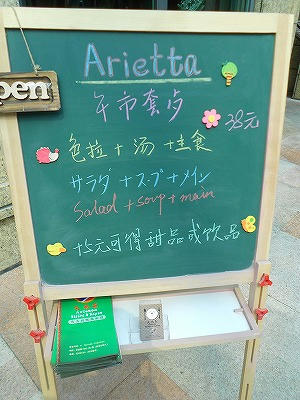 Arietta
pen
午市套歺
38元
色拉+汤+主食
サラダ+スープ+メイン
Salad+soup+main
+5元可得甜品或饮品